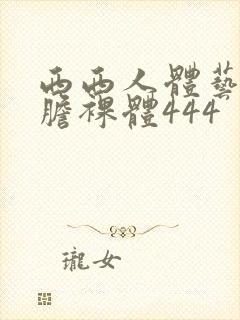 西西人體藝
膽裸體444
瓏女